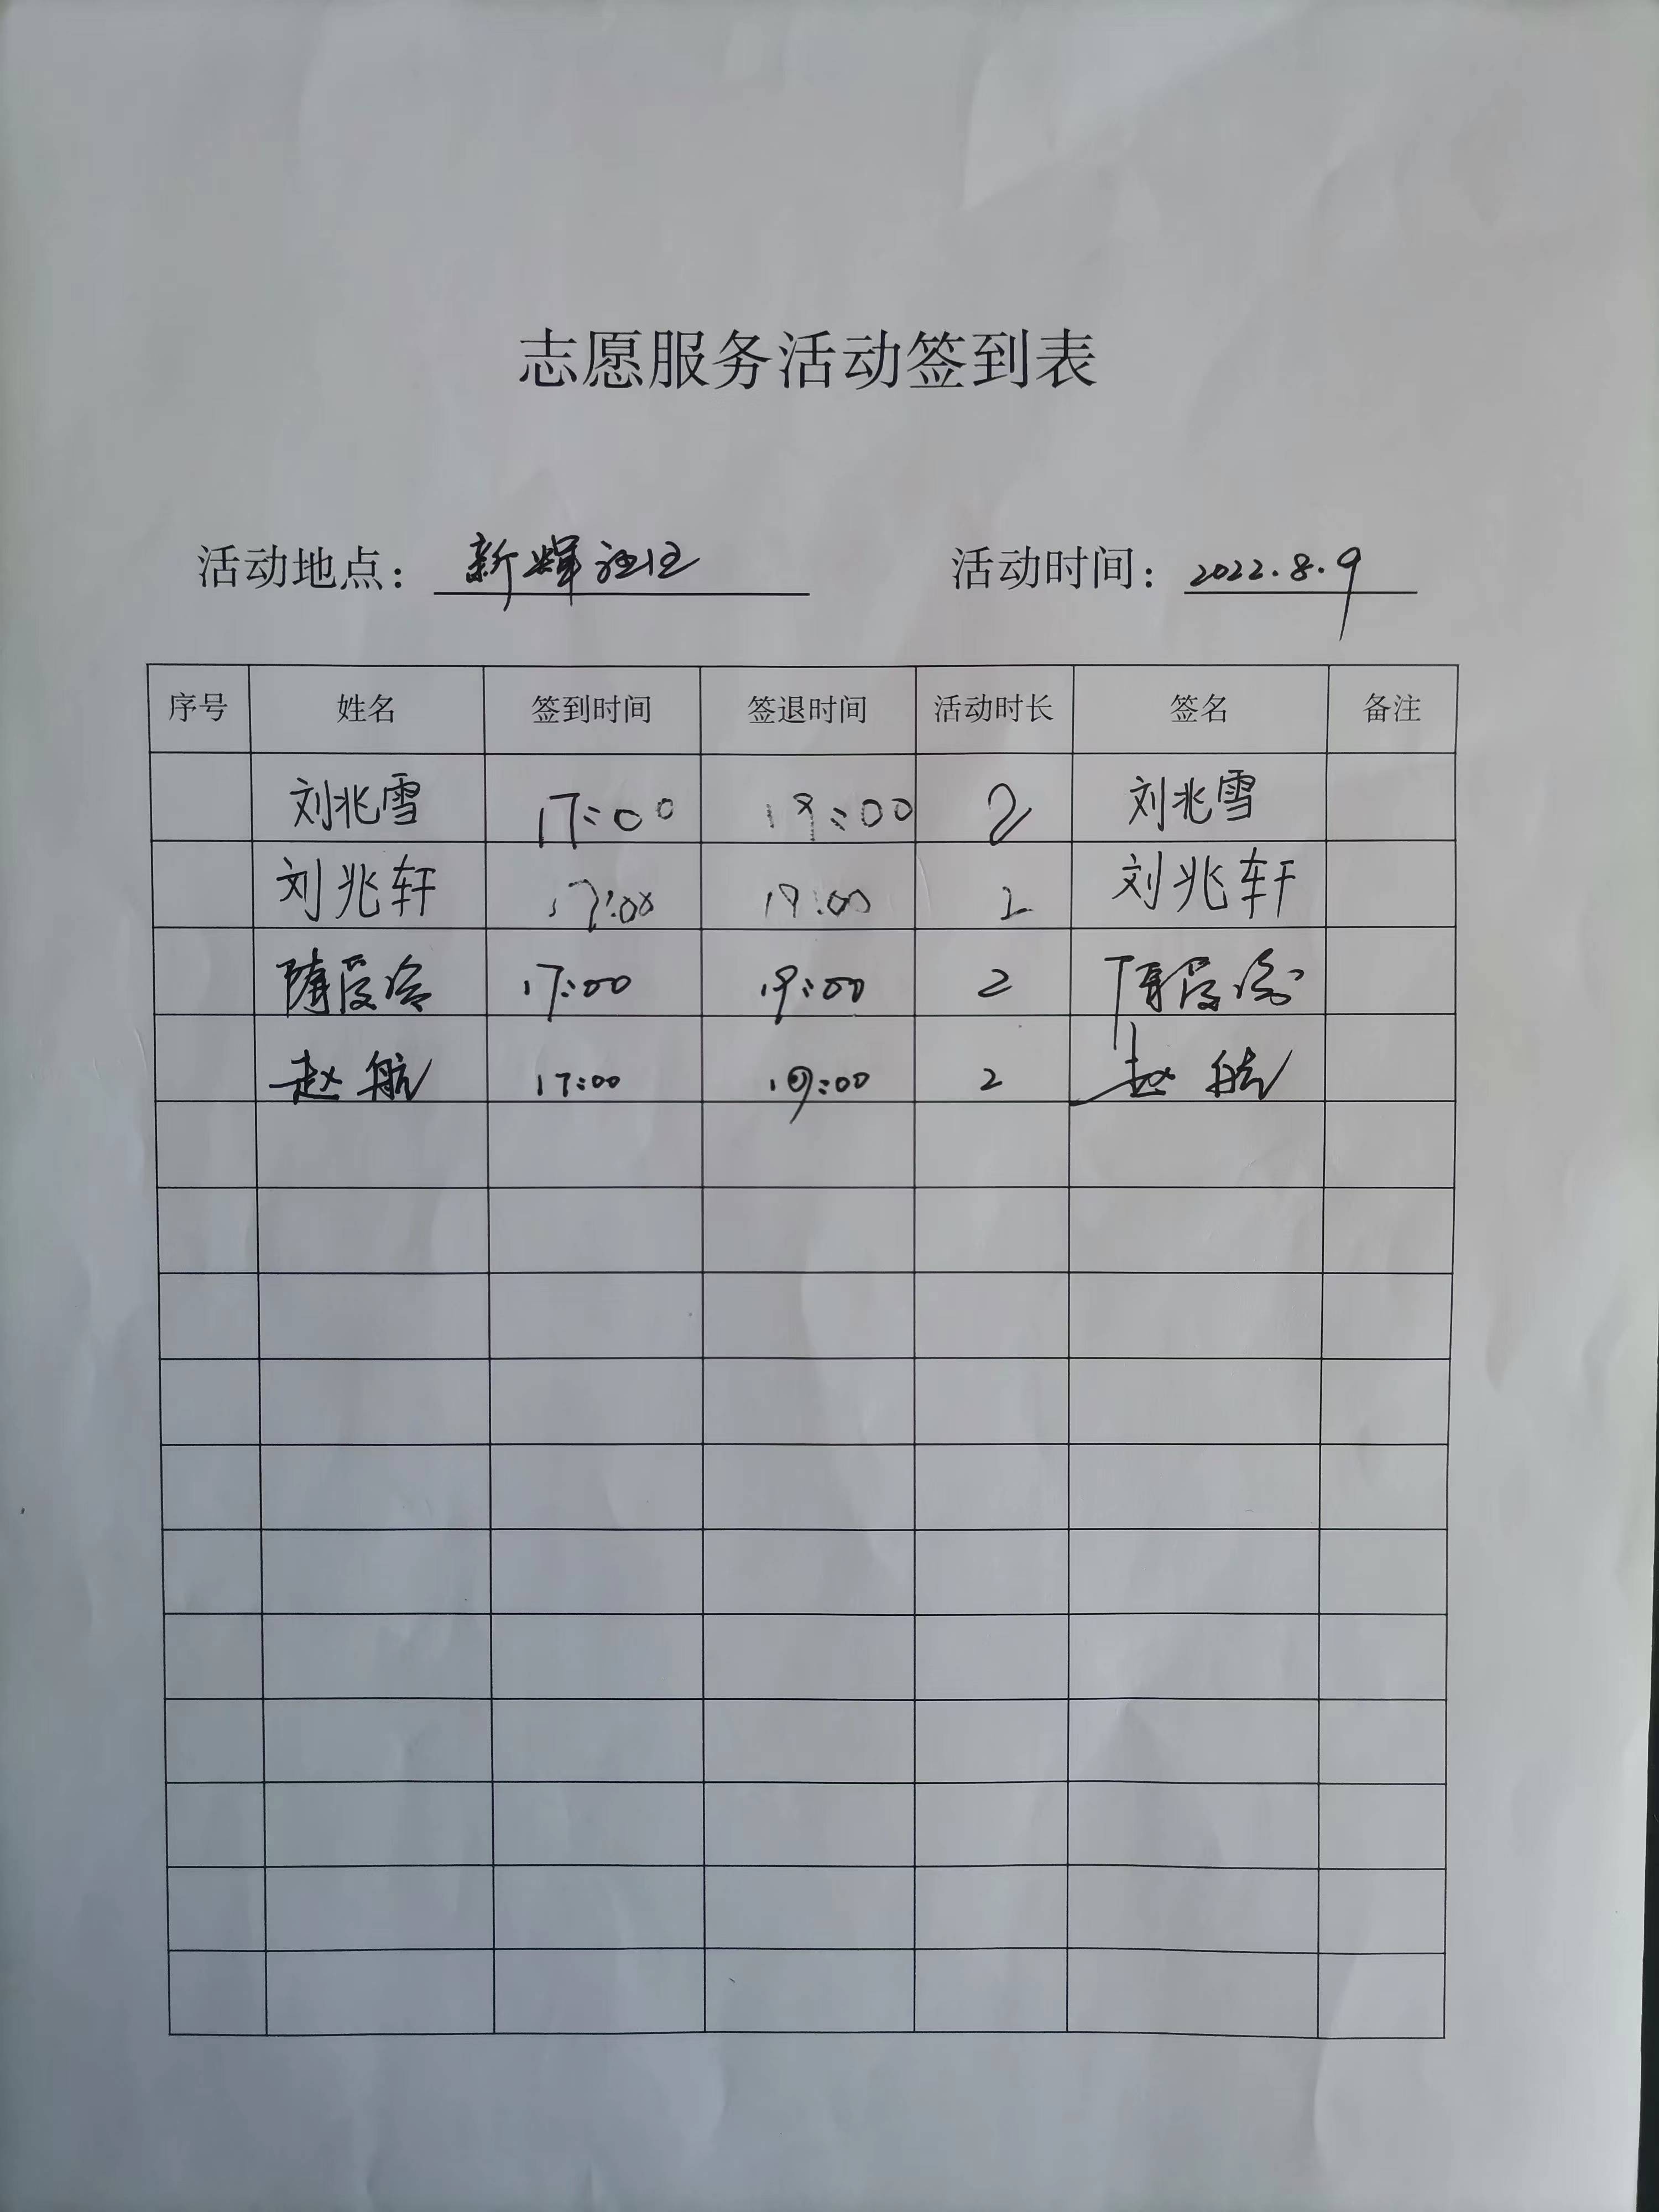 志愿服务活动签到表
活动地点： 新辉社区 活动时间： 2022.8.9
序号 姓名 签到时间 签退时间 活动时长 签名 备注
刘兆雪 17:00 19:00 2 刘兆雪
刘兆轩 17:00 19:00 2 刘兆轩
17:00 19:00 2
赵航 17:00 19:00 2 赵航